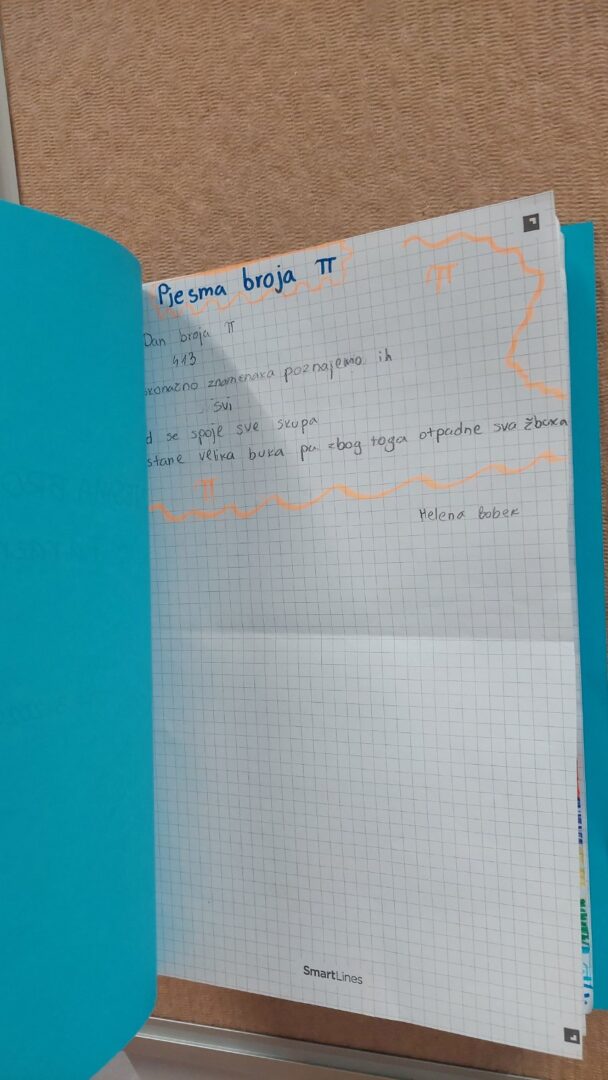 Pjesma broja π
π
Dan broja π
413
skonačno znamenaka poznajemo ih
svi
d se spoje sve skupa
stane velika buka pa zbog toga otpadne sva žbuka
π
Helena Bobek
SmartLines